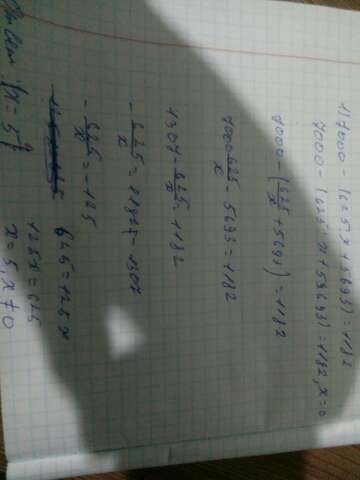 1) 7000-(625:x+5693)=1182
7000-(625:x+5693)=1182, x≠0
7000-(625/x+5693)=1182
7000-625/x-5693=1182
1307-625/x=1182
-625/x=1182-1307
-625/x=-125
625=125x
125x=625
x=5, x≠0
{x=5}